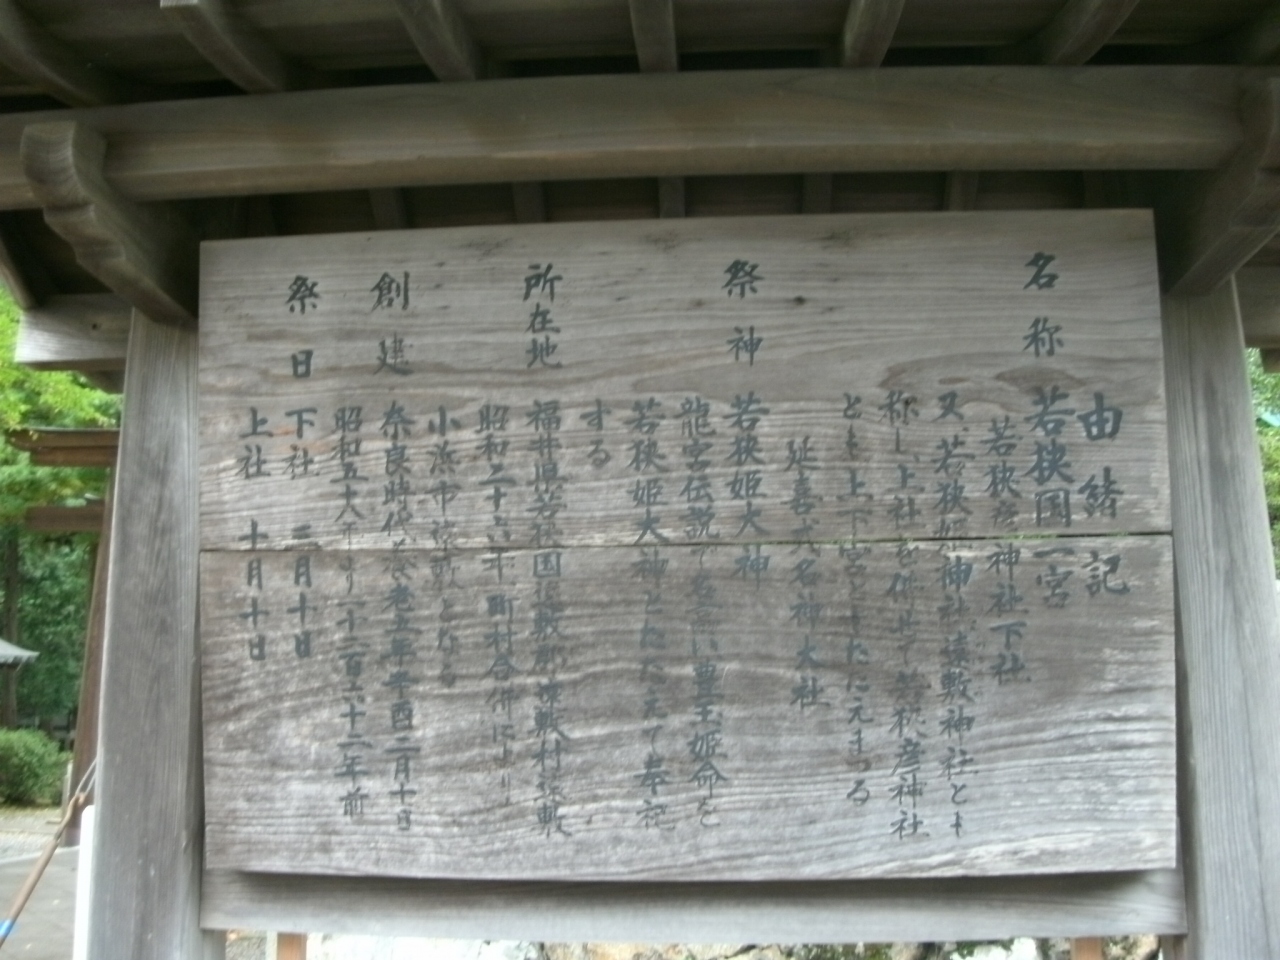 由緒記
名称 若狭国一宮
若狭彦神社下社
又、若狭姫神社遠敷神社とも
称し、上社を併せて若狭彦神社
とも上下宮ともたたえまつる
延喜式名神大社
祭神 若狭姫大神
龍宮伝説で名高い豊玉姫命を
若狭姫大神とたたえて奉祀
する
所在地 福井県若狭国遠敷郡遠敷村遠敷
昭和二十六年町村合併により
小浜市遠敷となる
創建 奈良時代養老五年辛酉二月十日
昭和五十八年より一千二百六十二年前
祭日 下社 三月十日
上社 十月十日